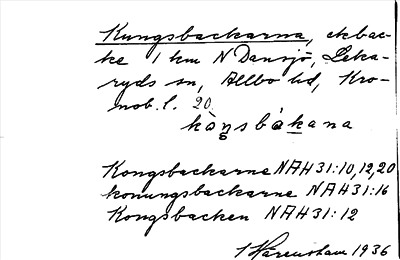 Kungsbackarna, ekbac-
ke 1 km N Dansjö, Leka-
ryds sn, Allbo hd, Kro-
nob. l. 20.
kòṉsbákana
Kongsbackarne NAH 31:10,12,20
konungsbackarne NAH 31:16
Kongsbacken NAH 31:12
1936